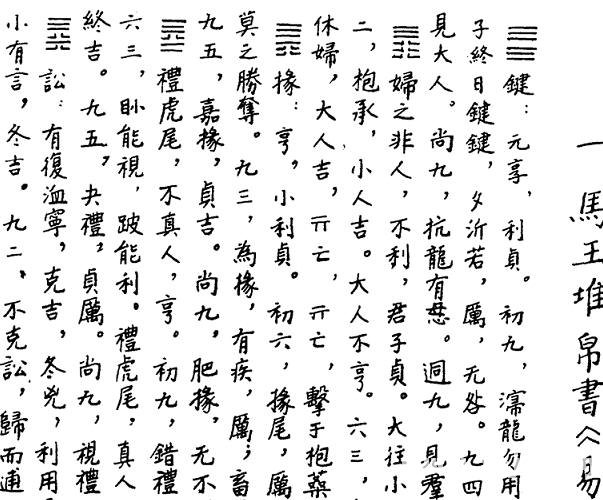 一 馬王堆帛書《易
䷀ 鍵：元享，利貞。初九，濡龍勿用
子終日鍵鍵，夕沂若，厲，无咎。九四
見大人。尚九，抗龍有。迵九，見羣
䷋ 婦之非人，不利，君子貞。大往小
二，抱承，小人吉。大人不亨。六三，
休婦，大人吉，亓亡，亓亡，擊于抱藥
䷠ 掾：亨，小利貞。初六，掾尾，厲
莫之勝奪。九三，為掾，有疾，厲；畜
九五，嘉掾，貞吉。尚九，肥掾，无不
䷉ 禮虎尾，不真人，亨。初九，錯禮
六三，眇能視，跛能利。禮虎尾，真人
終吉。九五，夬禮，貞厲。尚九，視禮
䷅ 訟：有復洫寧，克吉，冬兇，利用
小有言，冬吉。九二，不克訟，歸而逋